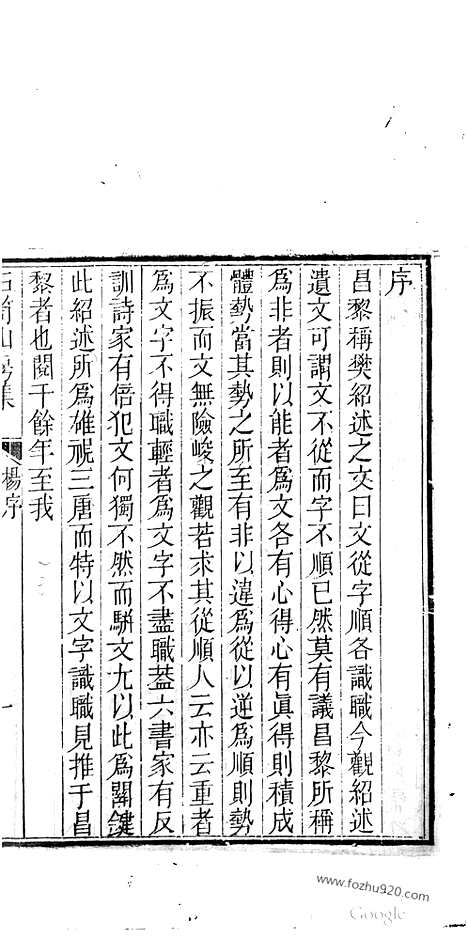 序
昌黎稱樊紹述之文曰文從字順各識職今觀紹述
遺文可謂文不從而字不順已然莫有議昌黎所稱
爲非者則以能者爲文各有心得心有眞得則積成
體勢當其勢之所至有非以違爲從以逆爲順則勢
不振而文無險峻之觀若求其從順人云亦云重者
爲文字不得職輕者爲文字不盡職葢六書家有反
訓詩家有倍犯文何獨不然而駢文尤以此爲關鍵
此紹述所爲雄視三唐而特以文字識職見推于昌
黎者也閱千餘年至我
石笥山房集
楊序
一
www.fozhu920.com
Google